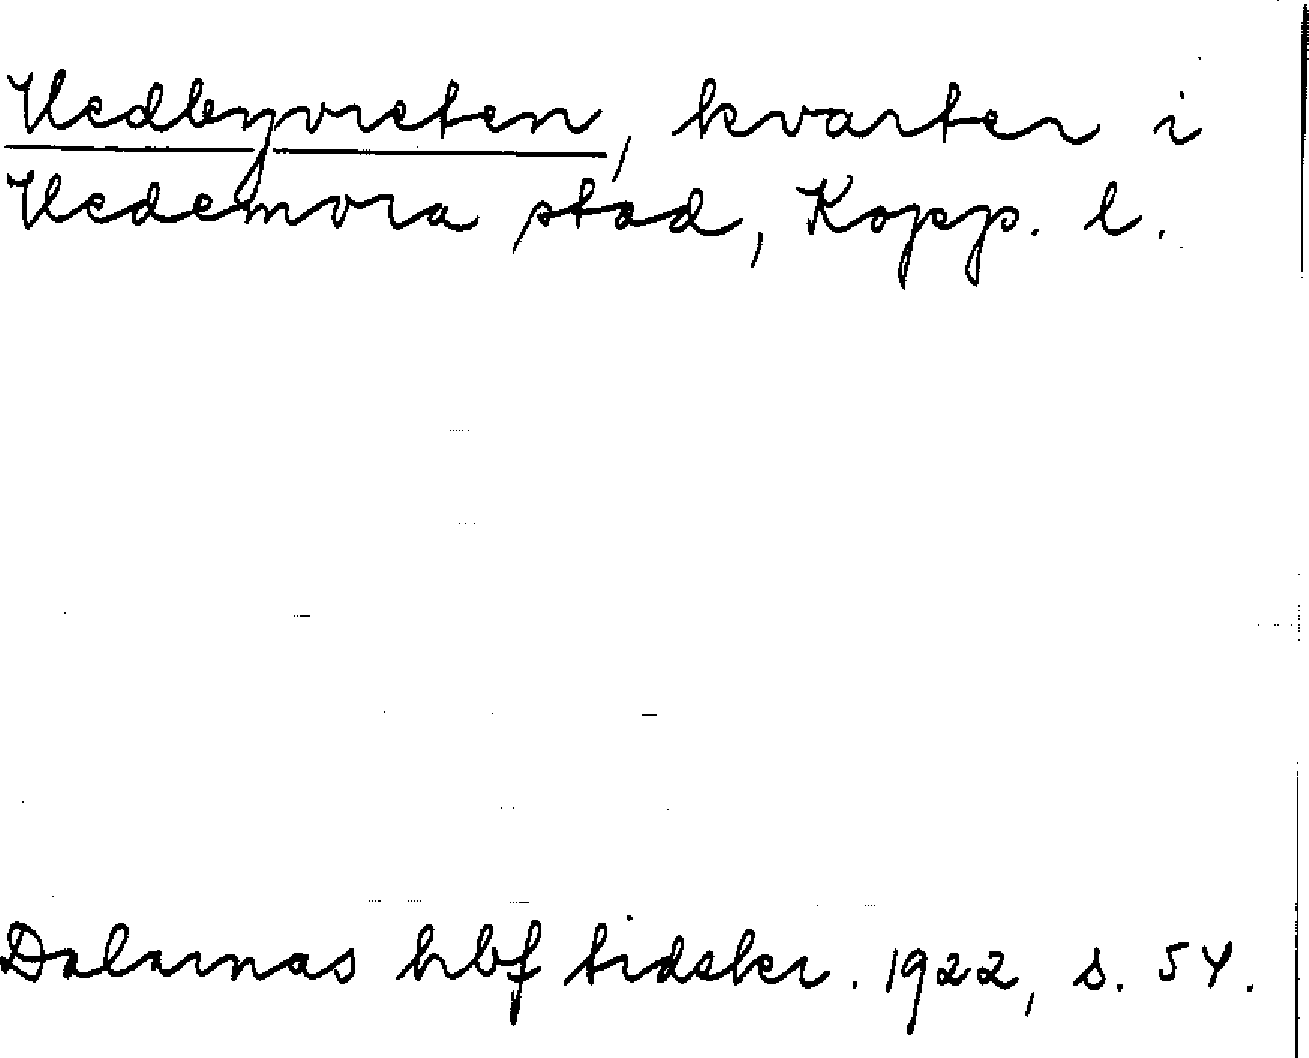 Vedbyvreten, kvarter i
Vedemora stad, Kopp. l.
Dalarnas hbf tidskr. 1922, s. 54.